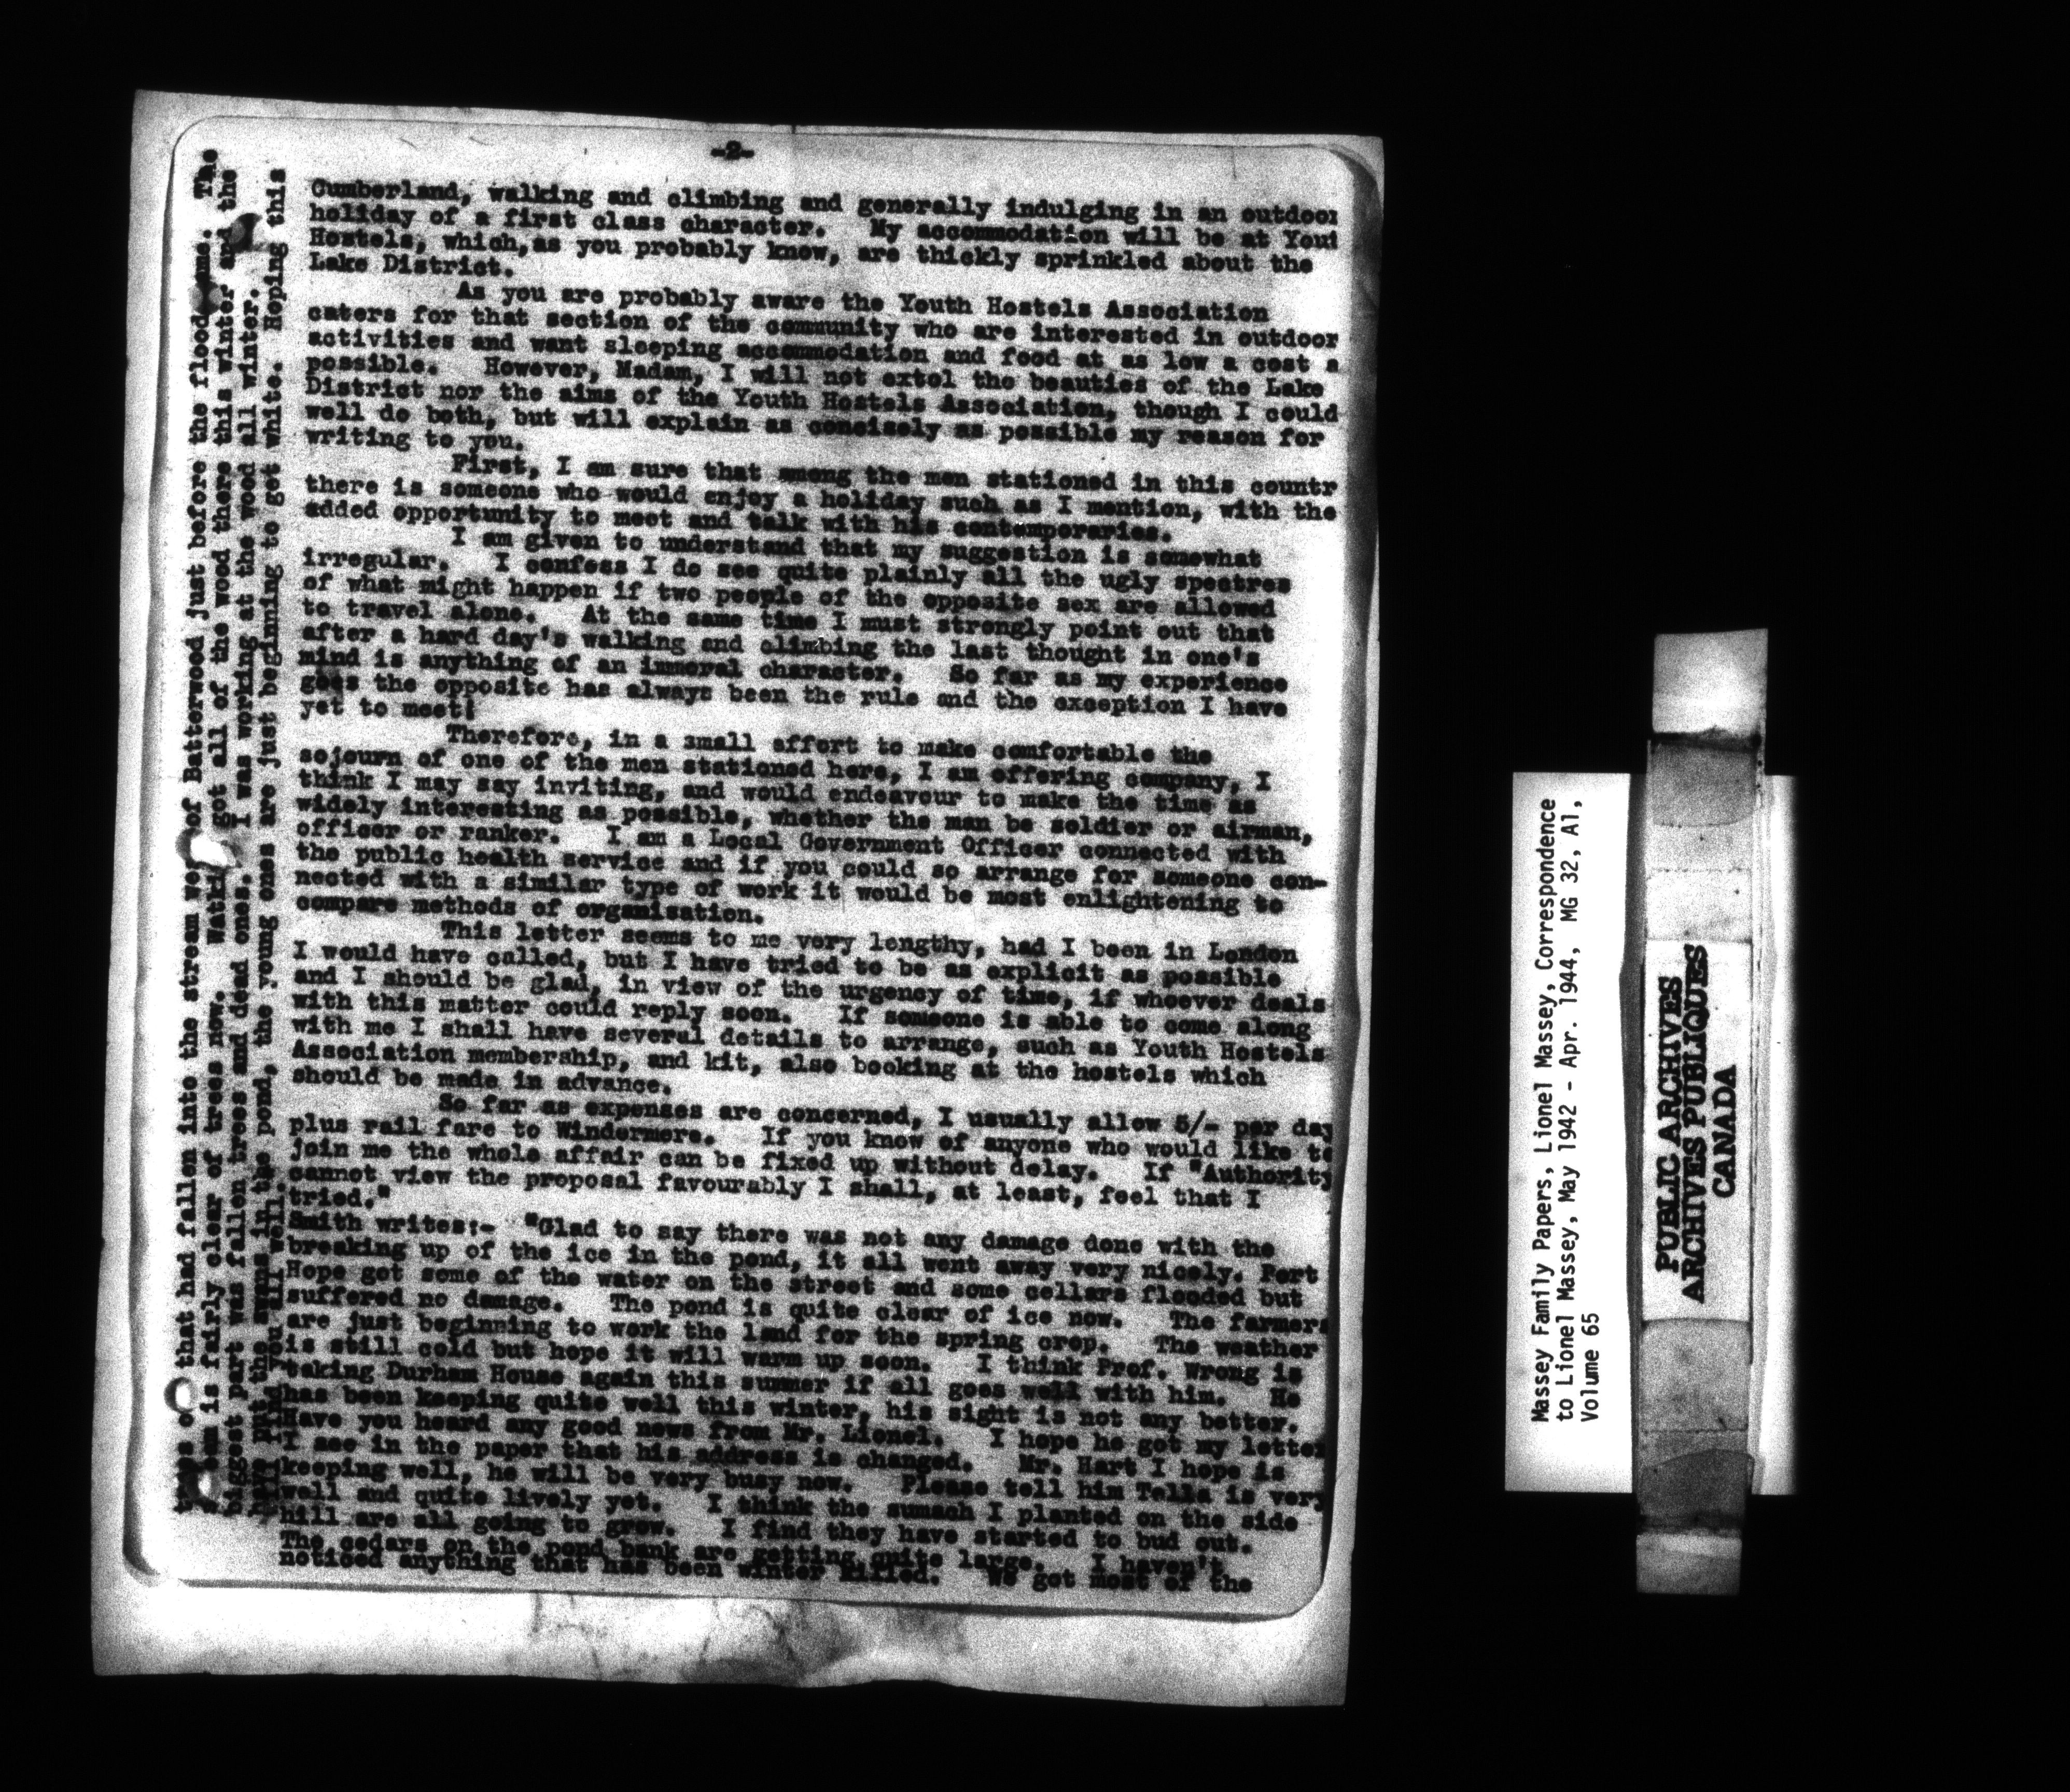 -2-
Cumberland, walking and climbing and generally indulging in an outdoor
holiday of a first class character. My accommodation will be at Yout
Hostels, which, as you probably know, are thickly sprinkled about the
Lake District.
As you are probably aware the Youth Hostels Association
caters for that section of the community who are interested in outdoor
activities and want sleeping accommodation and food at as low a cost a
possible. However, Madam, I will not extol the beauties of the Lake
District nor the aims of the Youth Hostels Association, though I could
well do both, but will explain as concisely as possible my reason for
writing to you.
First, I am sure that among the men stationed in this countr
there is someone who would enjoy a holiday such as I mention, with the
added opportunity to meet and talk with his contemporaries.
I am given to understand that my suggestion is somewhat
irregular. I confess I do see quite plainly all the ugly spectres
of what might happen if two people of the opposite sex are allowed
to travel alone. At the same time I must strongly point out that
after a hard day's walking and climbing the last thought in one's
mind is anything of an immoral character. So far as my experience
goes the opposite has always been the rule and the exception I have
yet to meet!
Therefore, in a small effort to make comfortable the
sojourn of one of the men stationed here, I am offering company, I
think I may say inviting, and would endeavour to make the time as
widely interesting as possible, whether the man be soldier or airman,
officer or ranker. I am a Local Government Officer connected with
the public health service and if you could so arrange for someone con-
nected with a similar type of work it would be most enlightening to
compare methods of organisation.
This letter seems to me very lengthy, had I been in London
I would have called, but I have tried to be as explicit as possible
and I should be glad, in view of the urgency of time, if whoever deals
with this matter could reply soon. If someone is able to come along
with me I shall have several details to arrange, such as Youth Hostels
Association membership, and kit, also booking at the hostels which
should be made in advance.
So far as expenses are concerned, I usually allow 5/- per day
plus rail fare to Windermere. If you know of anyone who would like to
join me the whole affair can be fixed up without delay. If "Authority
cannot view the proposal favourably I shall, at least, feel that I
tried."
Smith writes:- "Glad to say there was not any damage done with the
breaking up of the ice in the pond, it all went away very nicely. Port
Hope got some of the water on the street and some cellars flooded but
suffered no damage. The pond is quite clear of ice now. The farmers
are just beginning to work the land for the spring crop. The weather
is still cold but hope it will warm up soon. I think Prof. Wrong is
taking Durham House again this summer if all goes well with him. He
has been keeping quite well this winter, his sight is not any better.
Have you heard any good news from Mr. Lionel. I hope he got my letter
I see in the paper that his address is changed. Mr. Hart I hope is
keeping well, he will be very busy now. Please tell him Tella is very
well and quite lively yet. I think the sumach I planted on the side
hill are all going to grow. I find they have started to bud out.
The cedars on the pond bank are getting quite large. I haven't
noticed anything that has been winter killed. We got most of the
that had fallen into the stream of Batterwood just before the flood. The
is fairly clear of trees now. got all of the wood there this winter and the
biggest part was fallen trees and dead ones. I was working at the wood all winter.
have put the swans in the pond, the young ones are just beginning to get white. Hoping this
will find you all well.
Massey Family Papers, Lionel Massey, Correspondence
to Lionel Massey, May 1942 - Apr. 1944, MG 32, A1,
Volume 65
PUBLIC ARCHIVES
ARCHIVES PUBLIQUES
CANADA